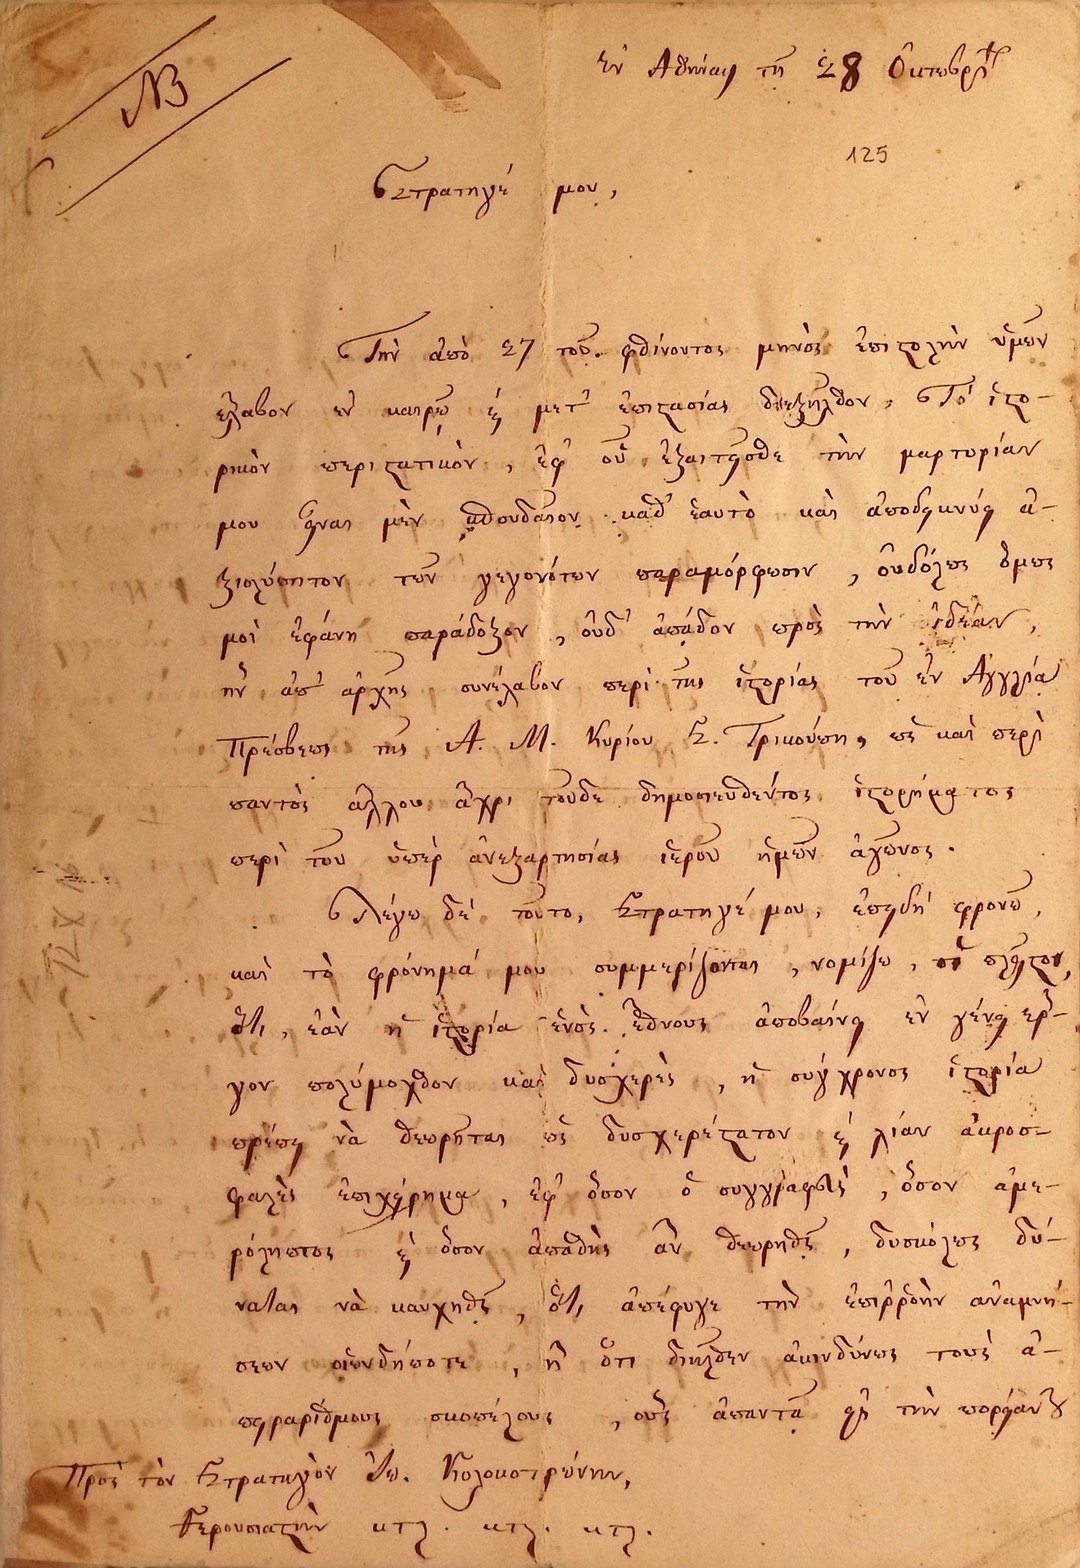 NB
Ἐν Ἀθήναις τῇ 28 Ὀκτωβρίου
125
Στρατηγέ μου,
Τὴν ἀπὸ 27 τοῦ φθίνοντος μηνὸς ἐπιστολὴν ὑμῶν
ἔλαβον ἐν καιρῷ καὶ μετ' ἐπιστασίας διεξῆλθον. Τὸ ἱστο-
ρικὸν περιστατικὸν, ἐφ' οὗ ἐξαιτεῖσθε τὴν μαρτυρίαν
μου εἶναι μὲν σπουδαῖον καθ' ἑαυτὸ καὶ ἀποδεικνύει ἀ-
ξιολύπητον τῶν γεγονότων παραμόρφωσιν, οὐδόλως ὅμως
μοὶ ἐφάνη παράδοξον, οὐδ' ἀπᾷδον πρὸς τὴν ἰδέαν,
ἣν ἀπ' ἀρχῆς συνέλαβον περὶ τῆς ἱστορίας τοῦ ἐν Ἀγγλίᾳ
Πρέσβεως τῆς Α. Μ. Κυρίου Σ. Τρικούπη, ὡς καὶ περὶ
παντὸς ἄλλου ἄχρι τοῦδε δημοσιευθέντος ἱστορήματος
περὶ τοῦ ὑπὲρ ἀνεξαρτησίας ἱεροῦ ἡμῶν ἀγῶνος.
Λέγω δὲ τοῦτο, Στρατηγέ μου, ἐπειδὴ φρονῶ,
καὶ τὸ φρόνημά μου συμμερίζονται, νομίζω, οἱ πλεῖστοι,
ὅτι, ἐὰν ἡ ἱστορία ἑνὸς ἔθνους ἀποβαίνῃ ἐν γένει ἔρ-
γον πολύμοχθον καὶ δυσχερὲς, ἡ σύγχρονος ἱστορία
πρέπει νὰ θεωρῆται ὡς δυσχερέστατον καὶ λίαν ἀκροσ-
φαλὲς ἐπιχείρημα, ἐφ' ὅσον ὁ συγγραφεὺς, ὅσον ἀμε-
ρόληπτος καὶ ὅσον ἀπαθὴς ἂν θεωρηθῇ, δυσκόλως δύ-
ναται νὰ καυχηθῇ, ὅτι ἀπέφυγε τὴν ἐπιῤῥοὴν ἀναμνή-
σεων οἱωνδήποτε, ἢ ὅτι διῆλθεν ἀκινδύνως τοὺς ἀ-
πειραρίθμους σκοπέλους, οὓς ἀπαντᾷ εἰς τὴν πορείαν του
Πρὸς τὸν Στρατηγὸν Ἰω. Κολοκοτρώνην,
Γερουσιαστὴν κτλ. κτλ. κτλ.